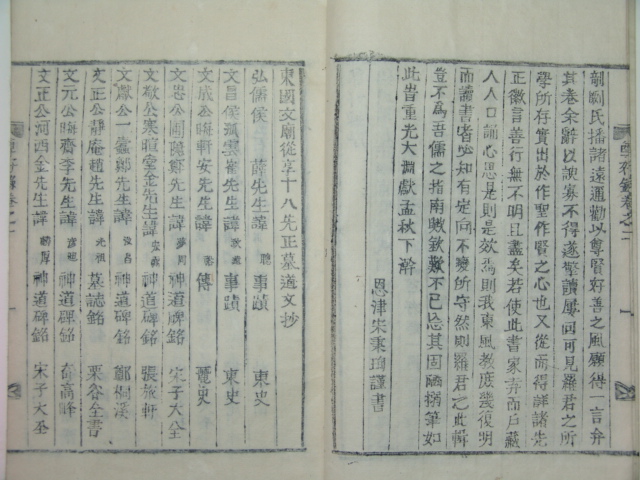 剞劂氏播諸遠邇勸以尊賢好善之風願得一言弁
其卷余辭以諛寡不得遂擎讀風回可見羅君之所
學所存實出於作聖作賢之心也又從而得詳諸先
正徽言善行無不明且盡矣若使此書家弆而戶藏
人人口誦心思是則是效焉則我東風敎庶幾復明
而讀書者必知有定向不變所守然則羅君之此輯
豈不爲吾儒之指南歟欽歎不已忘其固陋搦筆如
此皆重光大淵獻孟秋下澣
恩津宋秉珣謹書
東國文廟從享十八先正墓道文抄
弘儒侯 薛先生諱聰 事蹟 東史
文昌侯孤雲崔先生諱致遠 事蹟 東史
文成公晦軒安先生諱 傳 麗史
文忠公圃隱鄭先生諱夢周 神道碑銘 宋子大全
文敬公寒暄堂金先生諱宏弼 神道碑銘 張旅軒
文獻公一蠹鄭先生諱汝昌 神道碑銘 鄭桐溪
文正公靜庵趙先生諱光祖 墓誌銘 栗谷全書
文元公晦齋李先生諱彦迪 神道碑銘 奇高峰
文正公河西金先生諱麟厚 神道碑銘 宋子大全